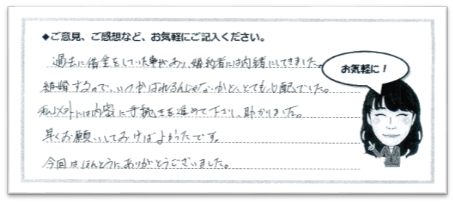 ◆ご意見、ご感想など、お気軽にご記入ください。
お気軽に！
過去に借金をしていた事があり、婚約者には内緒にしてきました。
結婚するので、いつかばれるんじゃないかと、とても心配でした。
私以外には内密に手続きを進めて下さり、助かりました。
早くお願いしてみればよかったです。
今回はほんとうにありがとうございました。